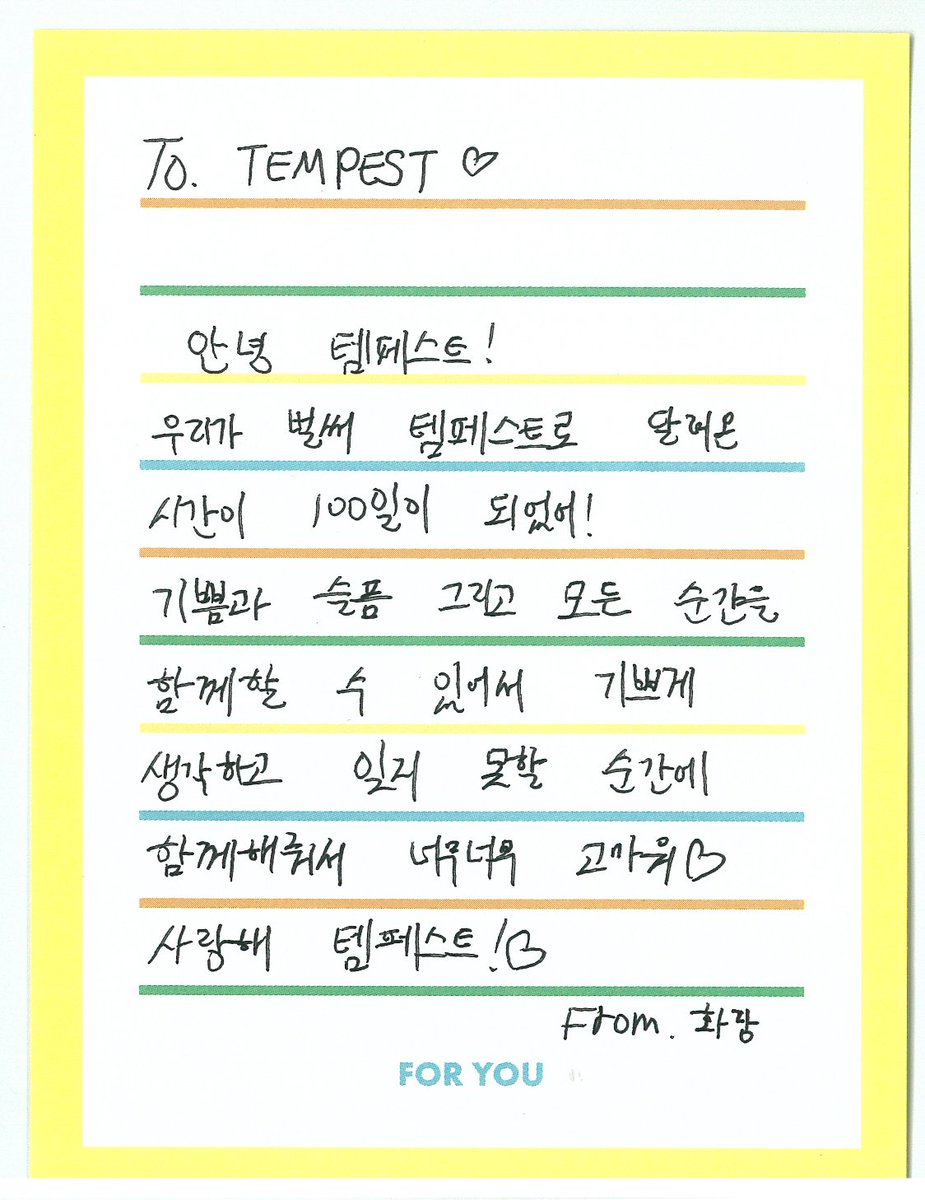 To. TEMPEST ♡
안녕 템페스트!
우리가 벌써 템페스트로 달려온
시간이 100일이 되었어!
기쁨과 슬픔 그리고 모든 순간을
함께할 수 있어서 기쁘게
생각하고 잊지 못할 순간에
함께해줘서 너무너무 고마워♡
사랑해 템페스트!♡
From. 화랑
FOR YOU